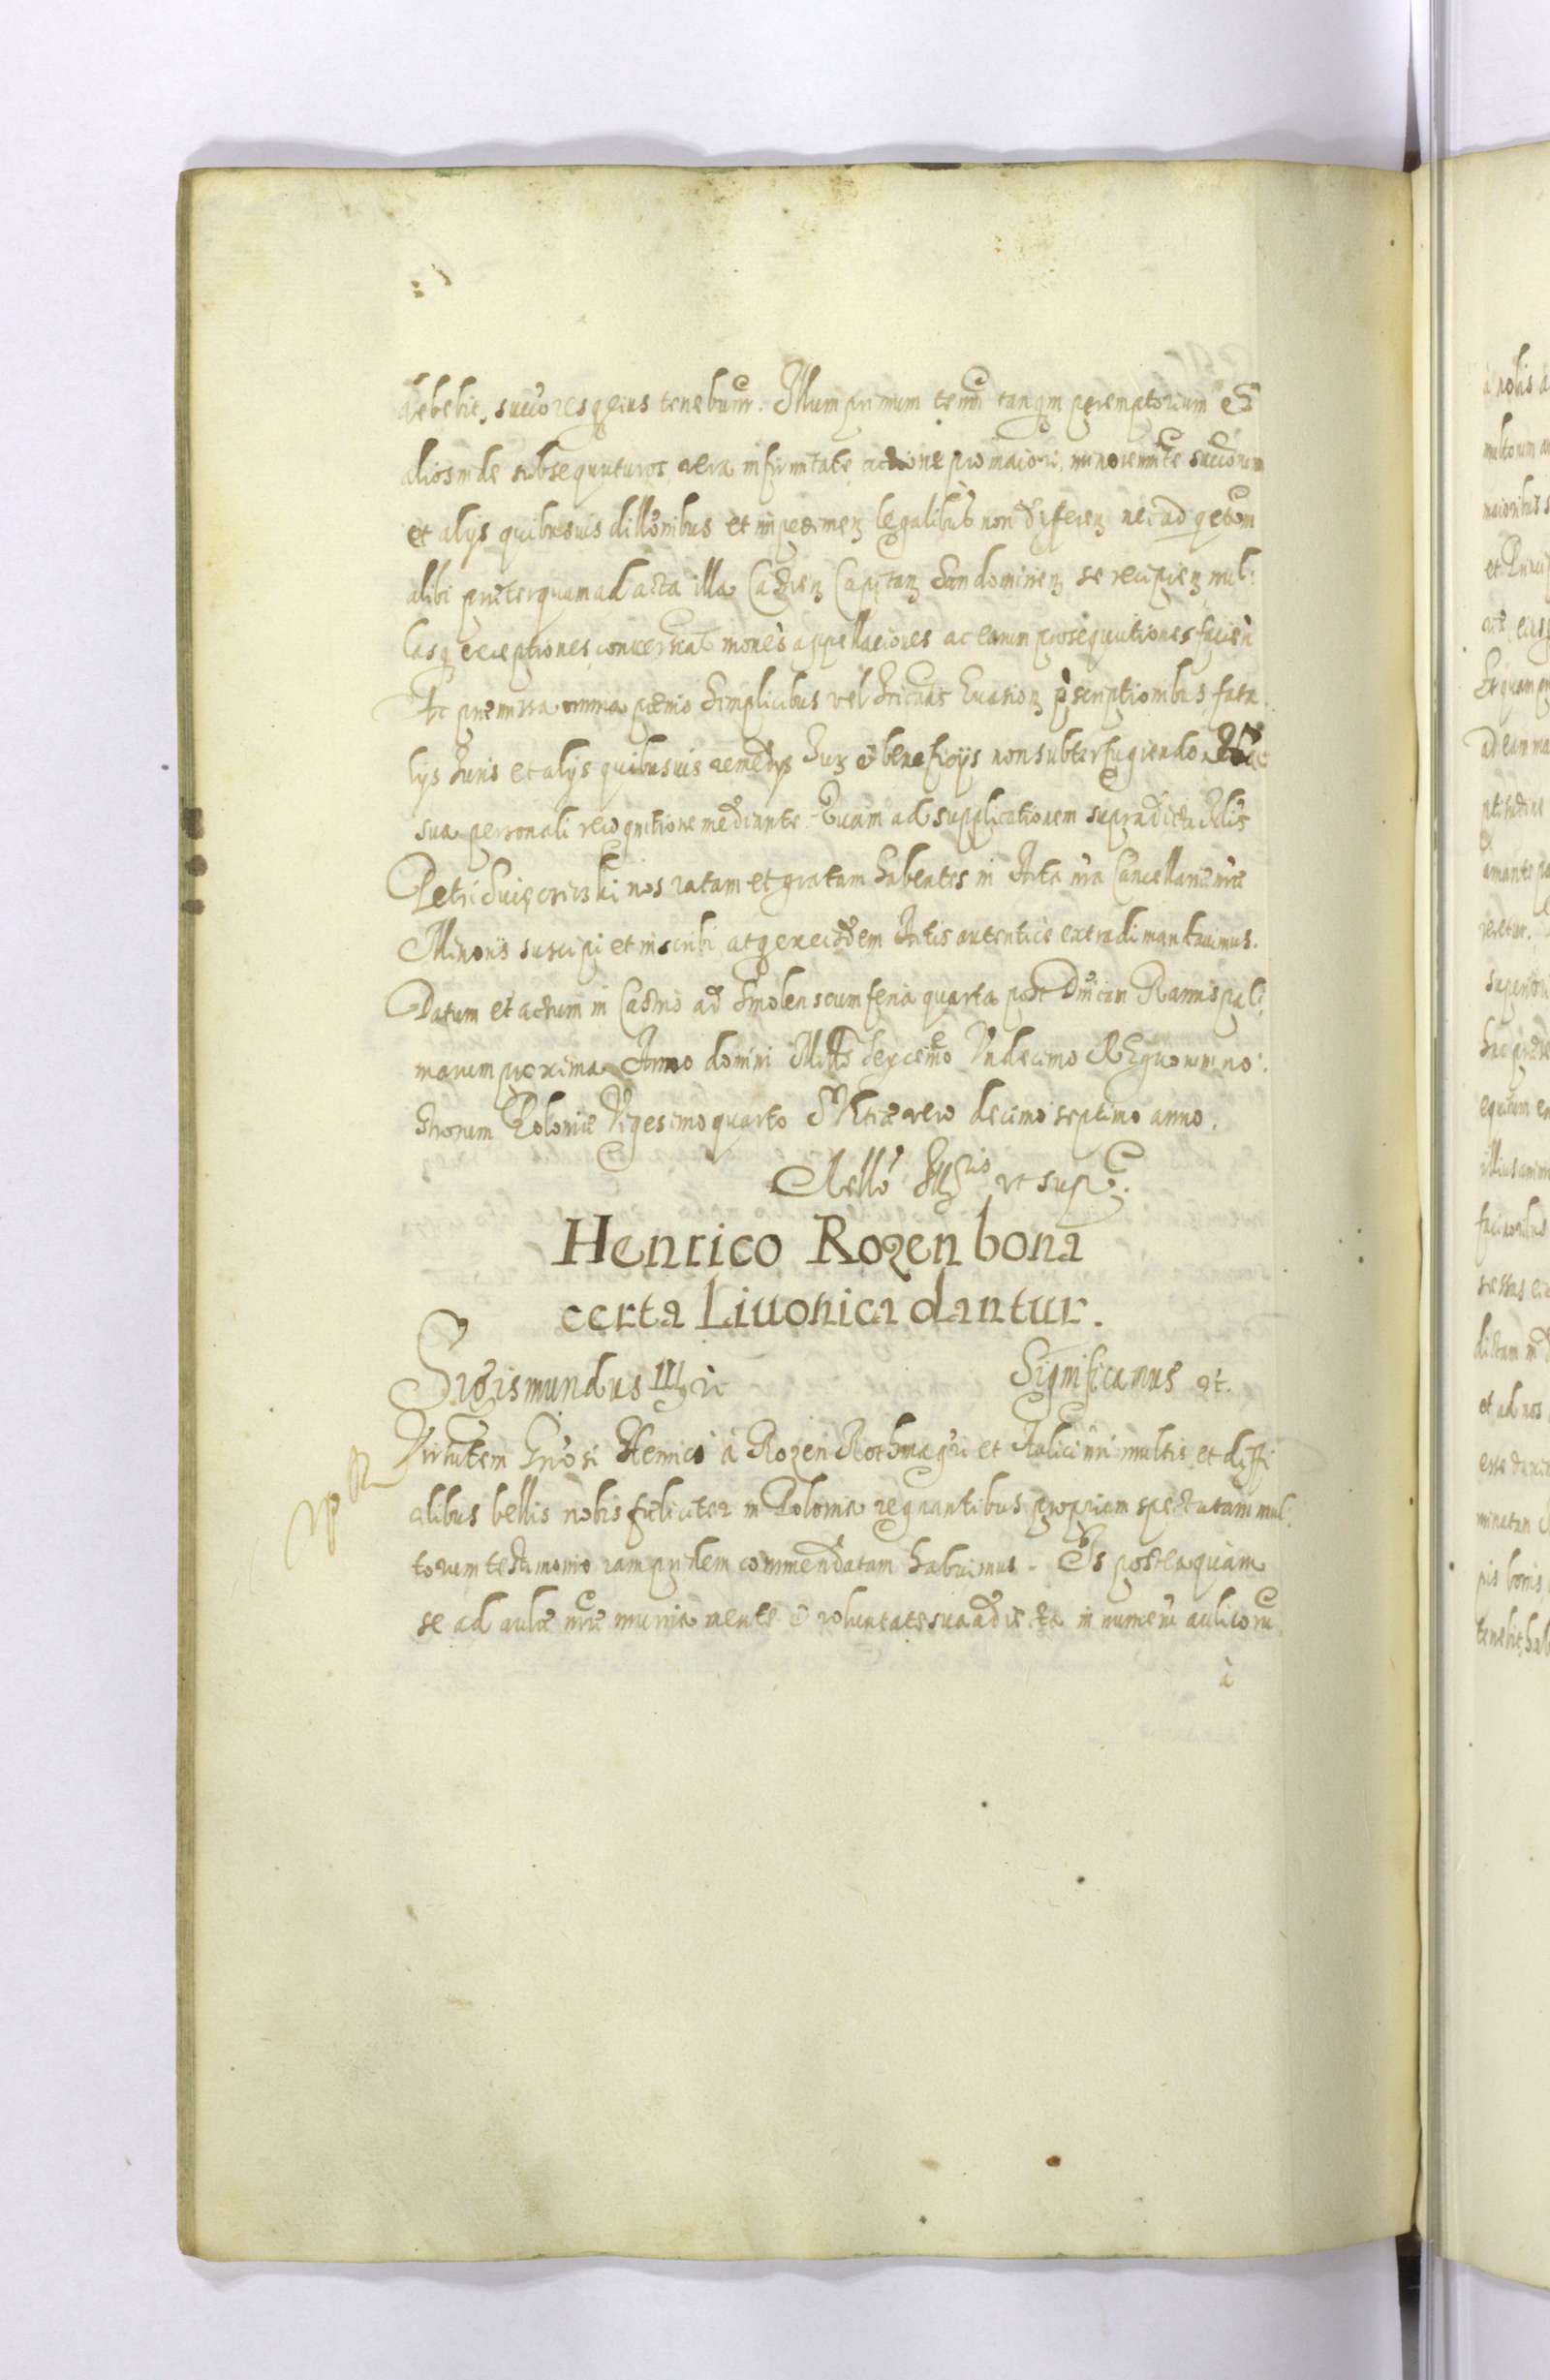 debebit, succōresq eius tenebunt. Illum primum termi tanqm peremptorium Et
alios inde subsequuturos vera infirmitate actione pro maiori, minorennite succorum
et alys quibusuis dillōnibus et impedimen legalibus non differen nec ad
alibi præterquam ad acta illa Castren Capitan Sandomirien se recipien nul:
lasq exceptiones, appellationes ac earum prosequutiones facien
Ac præmissa omnia præmio Simplicibus vel Euasion præscriptionibus, fata
lys Iuris et alys quibusuis remedys Iur et beneficijs non subterfugiendo
sua personali recognitione mediante. Quam ad supplicationem supradicti Nlis
Petri nos ratam et gratam habentes in Acta nra Cancellariæ nræ
Minoris suscipi et inscribi atq ex eisdem Actis autentice extradi mandauimus.
Datum et actum in Castris ad Smolenscum feria quarta post Dnicam Ramis pal:
marum proxima Anno domini Millo Sexcenmo Vndecimo REgnorum no:
strorum Poloniæ Vigesimo quarto Suetiæ vero decimo septimo anno.
Rellō vt supra.
Henrico Rozen bona
certa Liuonica dantur.
Sigismundus III, ic Significamus etc.
Virtutem Gnosi Henrici à Rozen Rothmagri et Aulici nri multis et diffi
cilibus bellis nobis fæliciter in Polonia regnantibus propriam spectatam mul:
torum testimonio iam pridem commendatam habuimus. Is posteaquam
se ad aulæ nræ munia mente et voluntate sua adiecta in numerū aulicorū
à